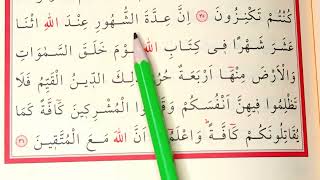 كُنْتُمْ تَكْنِزُونَ ﴿٣٥﴾ اِنَّ عِدَّةَ الشُّهُورِ عِنْدَ اللّٰهِ اثْنَا
عَشَرَ شَهْرًا فِى كِتَابِ اللّٰهِ يَوْمَ خَلَقَ السَّمٰوَاتِ
وَالْاَرْضَ مِنْهَٓا اَرْبَعَةٌ ذٰلِكَ الدِّينُ الْقَيِّمُ فَلَا
تَظْلِمُوا فِيهِنَّ اَنْفُسَكُمْ الْمُشْرِكِينَ كَٓافَّةً كَمَا
يُقَاتِلُونَكُمْ كَٓافَّةً وَاعْلَمُٓوا اَنَّ اللّٰهَ مَعَ الْمُتَّقِينَ ﴿٣٦﴾